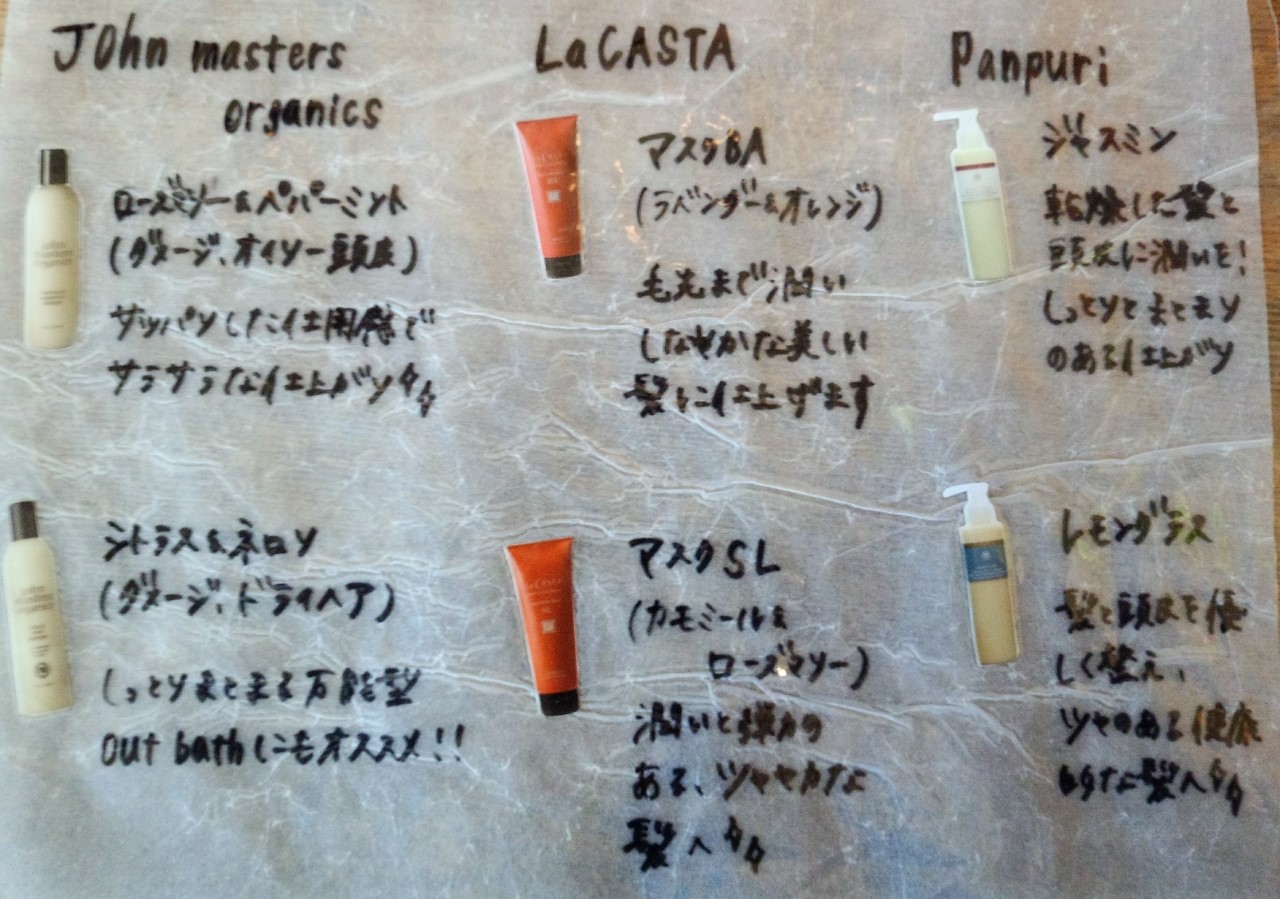 John masters
organics
ローズマリー&ペパーミント
(ダメージ、オイリー頭皮)
サッパリした使用感で
サラサラな仕上がり
シトラス&ネロリ
(ダメージ、ドライヘア)
しっとりまとまる万能型
out bathにもオススメ!!
LaCASTA
マスクBA
(ラベンダー&オレンジ)
毛先まで潤い
しなやかな美しい
髪に仕上げます
マスクSL
(カモミール&
ローズマリー)
潤いと弾力の
ある、ツヤヤカな
髪へ
Panpuri
ジャスミン
乾燥した髪と
頭皮に潤いを!
しっとりとまとまり
のある仕上がり
レモングラス
髪と頭皮を優
しく整え、
ツヤのある健康
的な髪へ